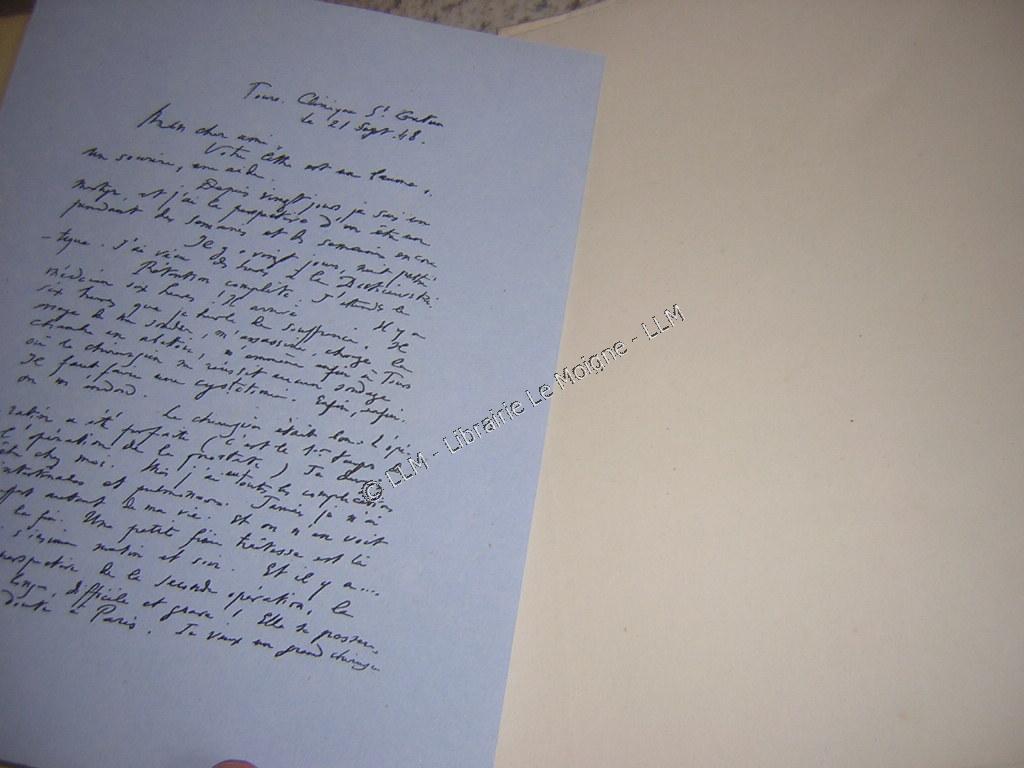 Tours. Clinique St Gatien
le 21 Sept. 48.
Mon cher ami,
Votre lettre est un baume,
un sourire, une aide. Depuis vingt jours je suis un
martyr, et j'ai la perspective d'en être un
pendant des semaines et des semaines encore.
Il y a vingt jours, nuit
J'ai vécu des heures à la
Rétention complète. J'attends le
médecin six heures. Il arrive. Il y a
six heures que je hurle de souffrance. Il
essaye de me sonder, m'assassine, change la
chambre en abattoir, m'emmène enfin à Tours
où le chirurgien ne réussit aucun sondage
Il faut faire une cystotomie. Enfin, enfin.
on m'endort.
Le chirurgien était bon. L'opé-
ration a été parfaite (c'est le 1er temps
de l'opération de la prostate)
chez moi. Mais j'ai eu toutes les complications
intestinales et pulmonaires. Jamais je n'ai
souffert autant de ma vie. Et on n'en voit
la fin. Une petite fièvre traîtresse est là
matin et soir. Et il y a....
perspective de la seconde opération, la
longue, difficile et grave! Elle se passera
doute à Paris. Je veux un grand chirurgien
© LLM - Librairie Le Moigne - LLM